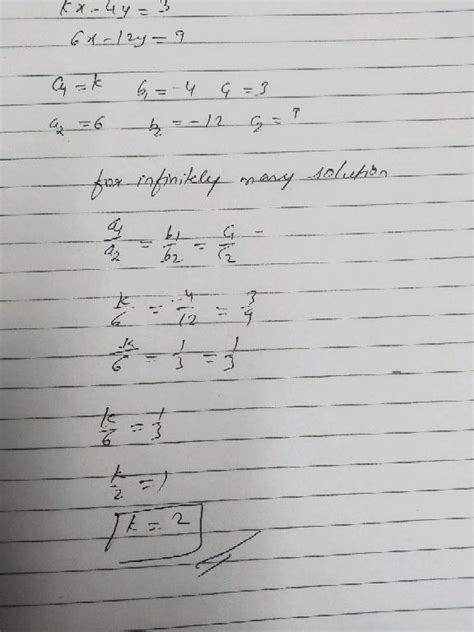 kx-4y=3
6x-12y=9
a1=k b1=-4 c1=3
a2=6 b2=-12 c2=9
for infinitely many solution
a1/a2 = b1/b2 = c1/c2
k/6 = -4/12 = 3/9
k/6 = 1/3 = 1/3
k/6 = 1/3
k/2 = 1
k = 2